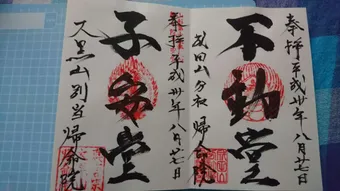 奉拝 平成卅年 八月廿七日
不動堂
武田山分社 帰命院
奉拝 平成卅年 八月廿七日
子安堂
大黒山別当 帰命院